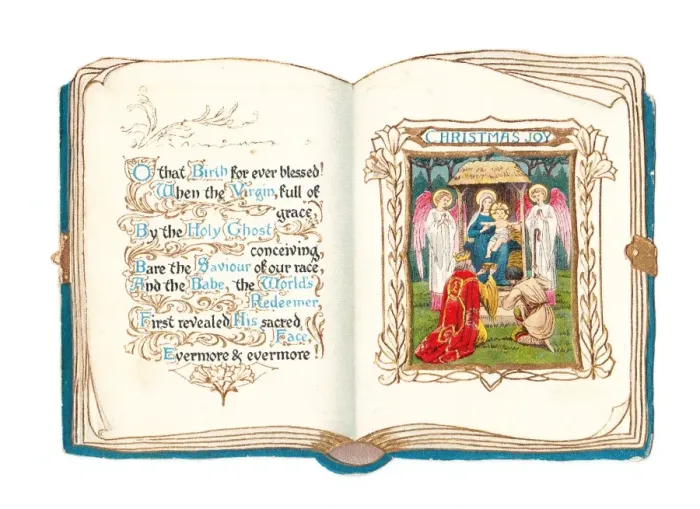 O that Birth for ever blessed!
When the Virgin, full of
grace,
By the Holy Ghost
conceiving,
Bare the Saviour of our race,
And the Babe, the World's
Redeemer,
First revealed His sacred
Face,
Evermore & evermore!
CHRISTMAS JOY